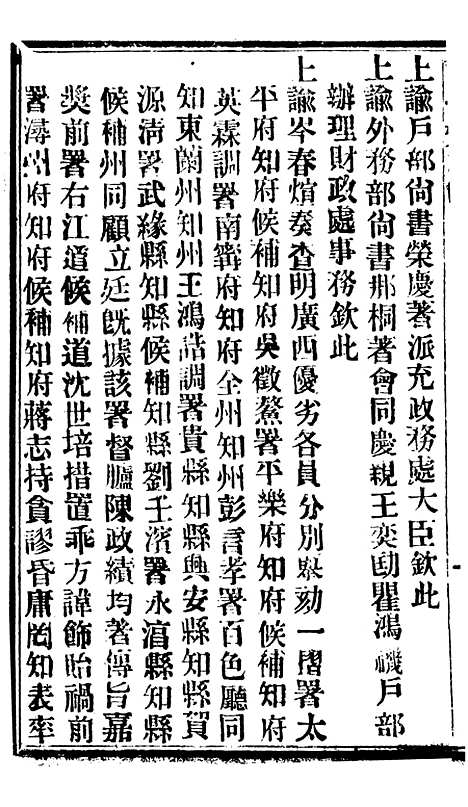 上諭戶部尙書榮慶著派充政務處大臣欽此
上諭外務部尙書那桐著會同慶親王奕劻瞿鴻禨戶部
辦理財政處事務欽此
上諭岑春煊奏查明廣西優劣各員分別舉劾一摺署太
平府知府候補知府吳徵鰲署平樂府知府候補知府
英霖調署南寗府知府全州知州彭言孝署百色廳同
知東蘭州知州王鴻誥調署貴縣知縣興安縣知縣賀
源淸署武緣縣知縣候補知縣劉壬濱署永湻縣知縣
候補州同顧立廷旣據該署督臚陳政績均著傳旨嘉
奬前署右江道候補道沈世培措置乖方諱飾貽禍前
署潯州府知府候補知府蔣志持貪謬昏庸罔知表率